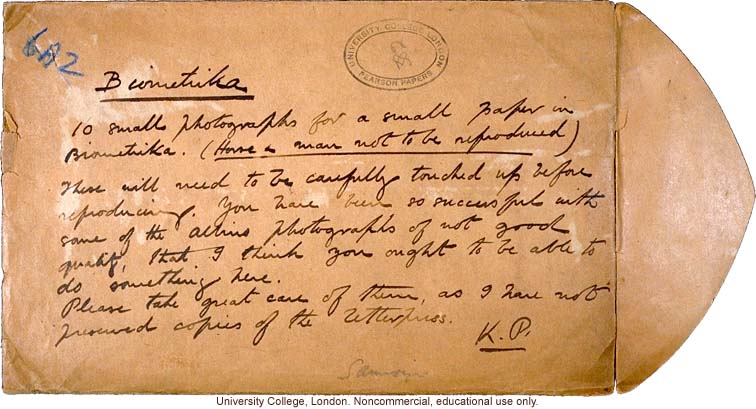 6A2
UNIVERSITY COLLEGE LONDON
PEARSON PAPERS
Biometrika
10 small photographs for a small paper in
Biometrika. (Horse & man not to be reproduced)
These will need to be carefully touched up before
reproducing. You have been so successful with
some of the albino photographs of not good
quality, that I think you ought to be able to
do something here.
Please take great care of them, as I have not
procured copies of the letterpress.
K.P.
University College, London. Noncommercial, educational use only.